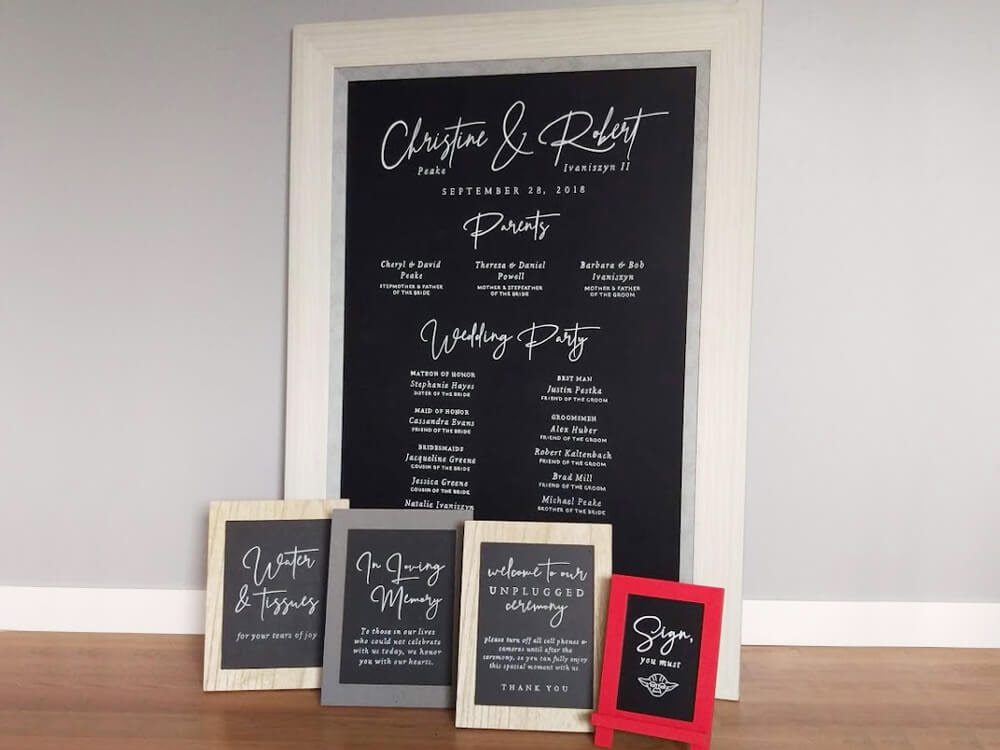 Christine & Robert
Peake Ivaniszyn II
SEPTEMBER 28, 2018
Parents
Cheryl & David
Peake
STEPMOTHER & FATHER
OF THE BRIDE
Theresa & Daniel
Powell
MOTHER & STEPFATHER
OF THE BRIDE
Barbara & Bob
Ivaniszyn
MOTHER & FATHER
OF THE GROOM
Wedding Party
MATRON OF HONOR
Stephanie Hayes
SISTER OF THE BRIDE
MAID OF HONOR
Cassandra Evans
FRIEND OF THE BRIDE
BRIDESMAIDS
Jacqueline Greene
COUSIN OF THE BRIDE
Jessica Greene
COUSIN OF THE BRIDE
Natalie Ivaniszyn
BEST MAN
Justin Pestka
FRIEND OF THE GROOM
GROOMSMEN
Alex Huber
FRIEND OF THE GROOM
Robert Kaltenbach
FRIEND OF THE GROOM
Brad Mill
FRIEND OF THE GROOM
Michael Peake
BROTHER OF THE BRIDE
Water
& Tissues
for your tears of joy
In Loving
Memory
To those in our lives
who could not celebrate
with us today, we honor
you with our hearts.
welcome to our
UNPLUGGED
ceremony
please turn off all cell phones &
cameras until after the
ceremony, so you can fully enjoy
this special moment with us.
THANK YOU
Sign,
you must